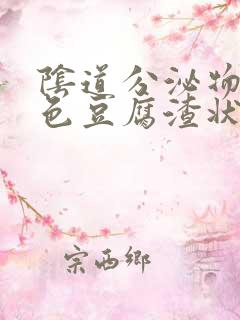 陰道分泌物
色豆腐渣狀
宗西鄉